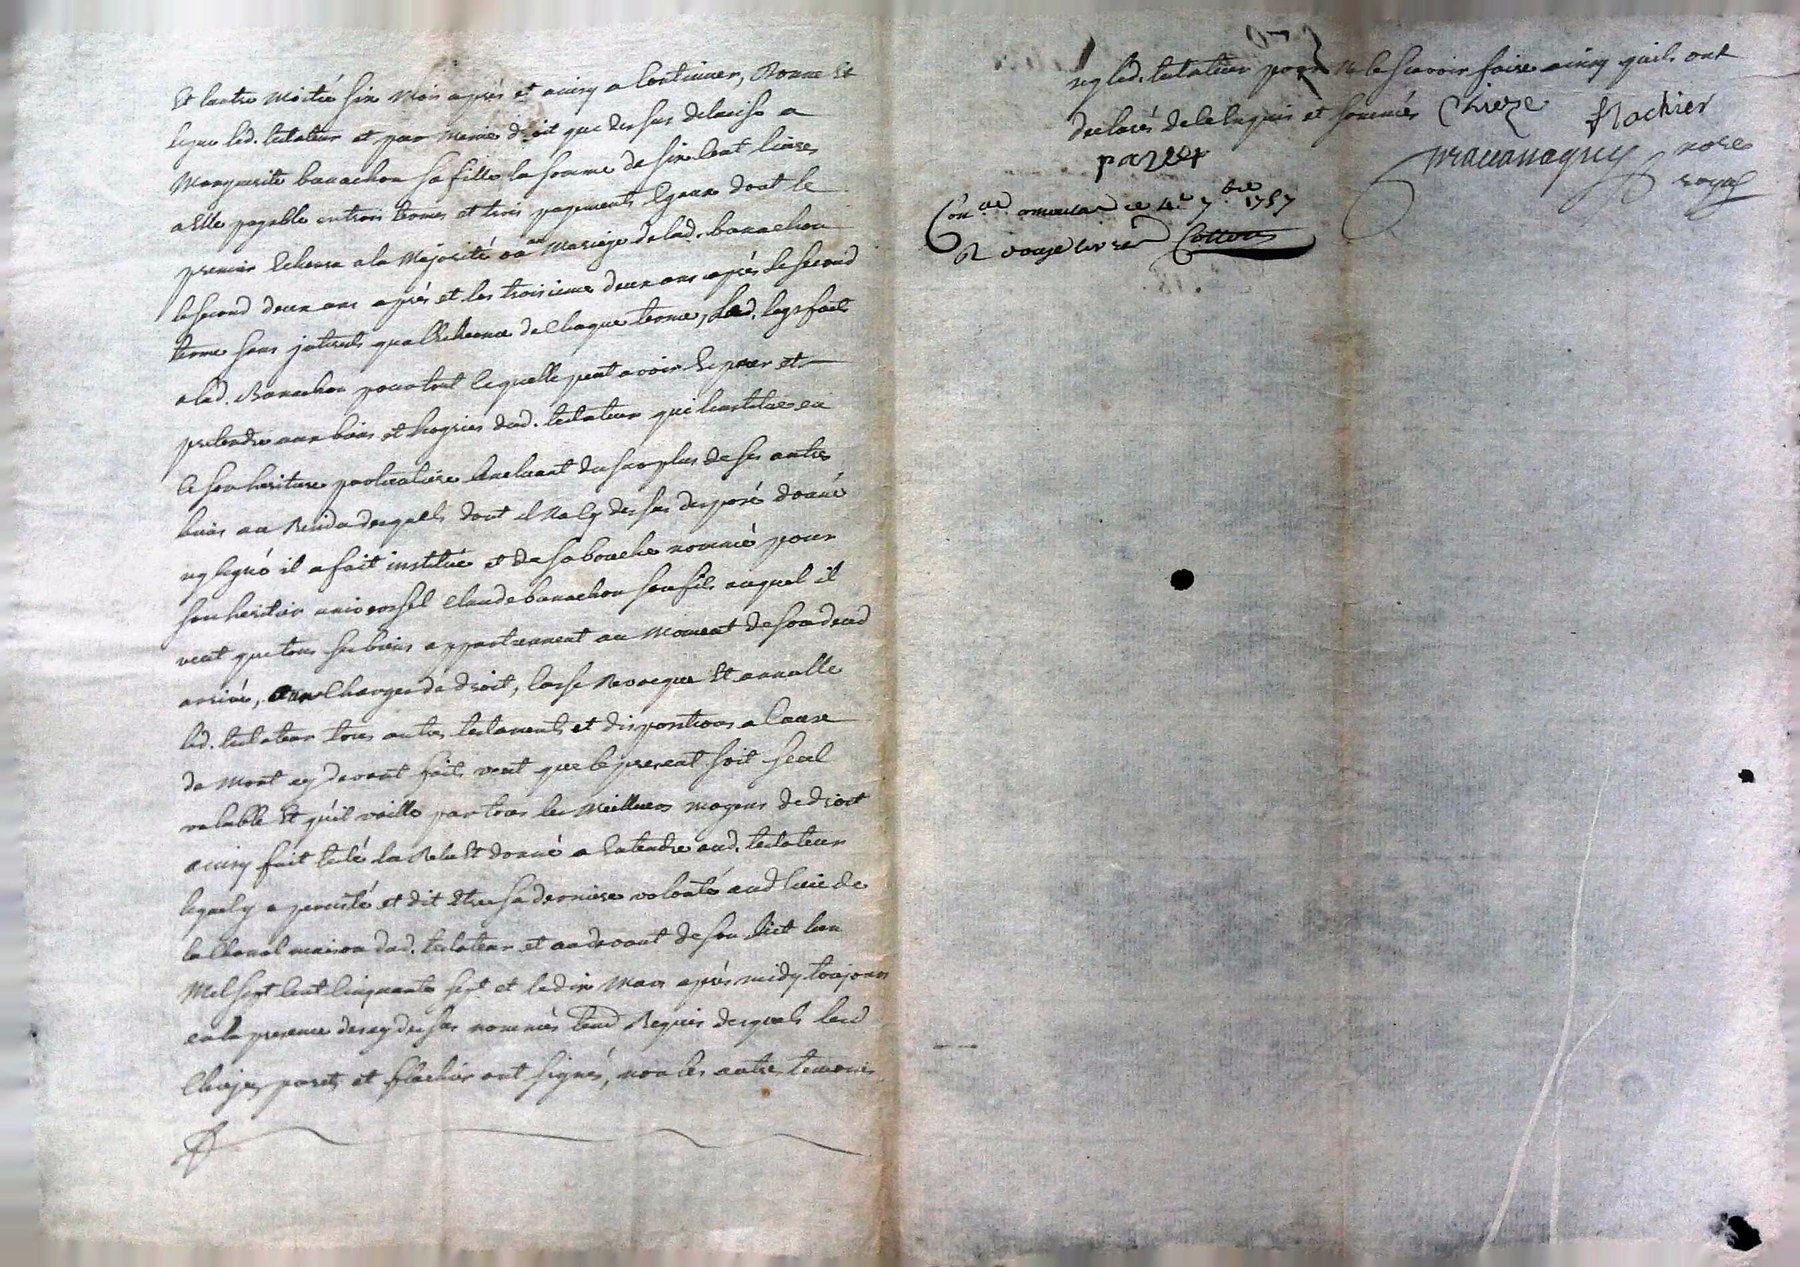 Et lautre Moitié six Mois après et ainsy a Continuer, Donne Et
legue led. testateur et par Meme droit que dessus delaisse a
Marguerite banachon sa fille la somme de six Cent livres
a Elle payable en trois termes et trois payements Egaux dont le
premier Echerra a la Majorité ou au Mariage de lad. banachon
le second deux ans après et les troisieme deux ans après le second
terme sans jnterets qua lEcheance de Chaque terme, led. legs fait
a lad. Banachon pour tout Ce quelle peut avoir Esperer et
pretendre aux biens et hoyries dud. testateur qui linstitue en
Ce son heritiere particuliere Excluant du surplus de ses autres
biens au Residu desquels dont il Na Cy dessus disposé donné
ny legué il a fait institué et de sa bouche nommé pour
son heritier universel Claude banachon son fils auquel il
veut que tous ses biens appartiennent au Moment de son deced
arrivé, aux Charges de droit, Casse Revoque Et annulle
led. testateur tous autres testaments et dispositions a Cause
de Mort cy devant faits veut que le present soit seul
valable Et qu'il vaille par tous les Meilleurs moyens de droit
ainsy fait leu Relu Et donné a Entendre aud. testateur
lequel y a persisté et dit Etre sa derniere volonté aud lieu de
la maison dud. testateur et au devant de son Lict Lan
Mil sept Cent Cinquante sept et le dix Mars après midy toujours
en la presence des cy dessus nommés tem. Requis desquels led
parets et flachier ont signés, non les autres temoins
ny led. testateur pour Ne le scavoir faire ainsy quils ont
declarés de ce Enquis et sommés Chieze flachier
paret nore
royal
Con.lé ce 4.e 7.bre 1757
R douze livres